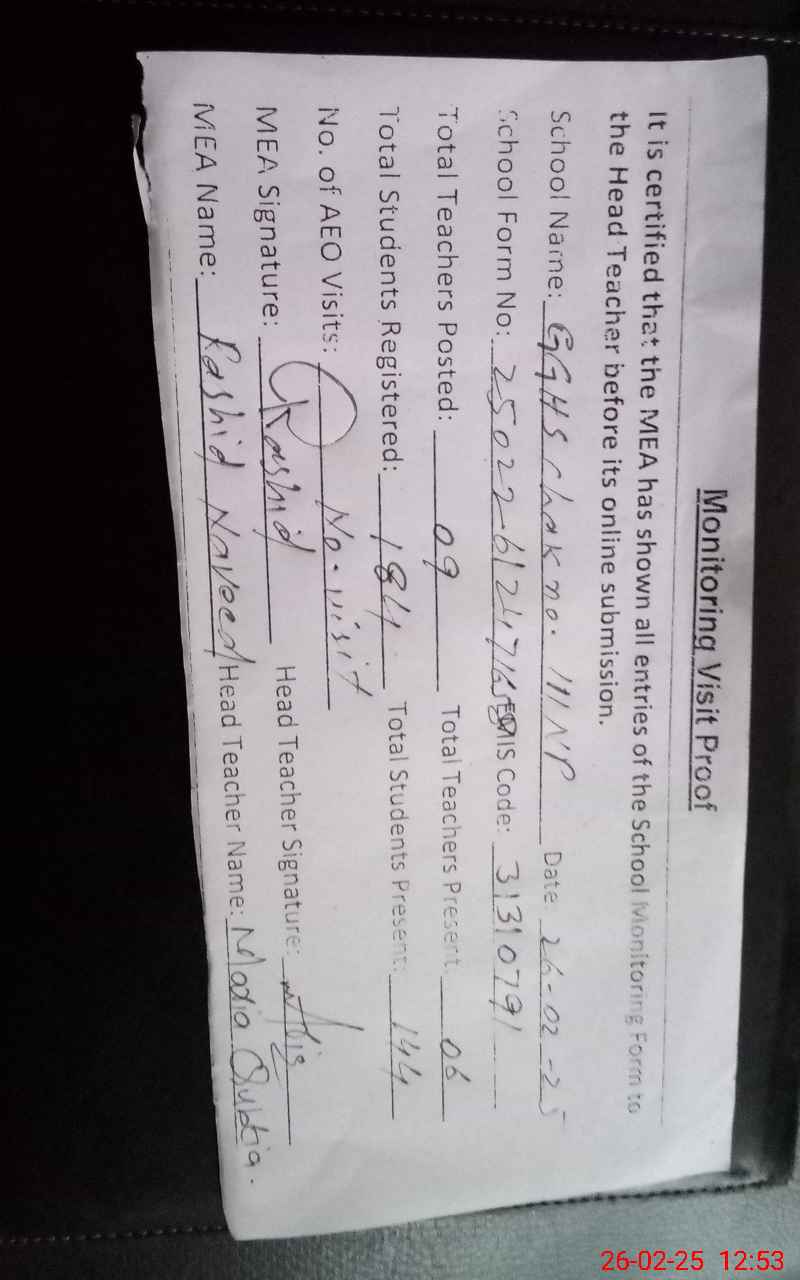 Monitoring Visit Proof
It is certified that the MEA has shown all entries of the School Monitoring Form to
the Head Teacher before its online submission.
School Name: GGHS chak no. 111 NP Date: 26-02-25
School Form No: 25022612471658 EMIS Code: 31310791
Total Teachers Posted: 09 Total Teachers Present: 06
Total Students Registered: 184 Total Students Present: 144
No. of AEO Visits: No. visit
MEA Signature: Rashid Head Teacher Signature:
MEA Name: Rashid Naveed Head Teacher Name: Maria Qubtia.
26-02-25 12:53